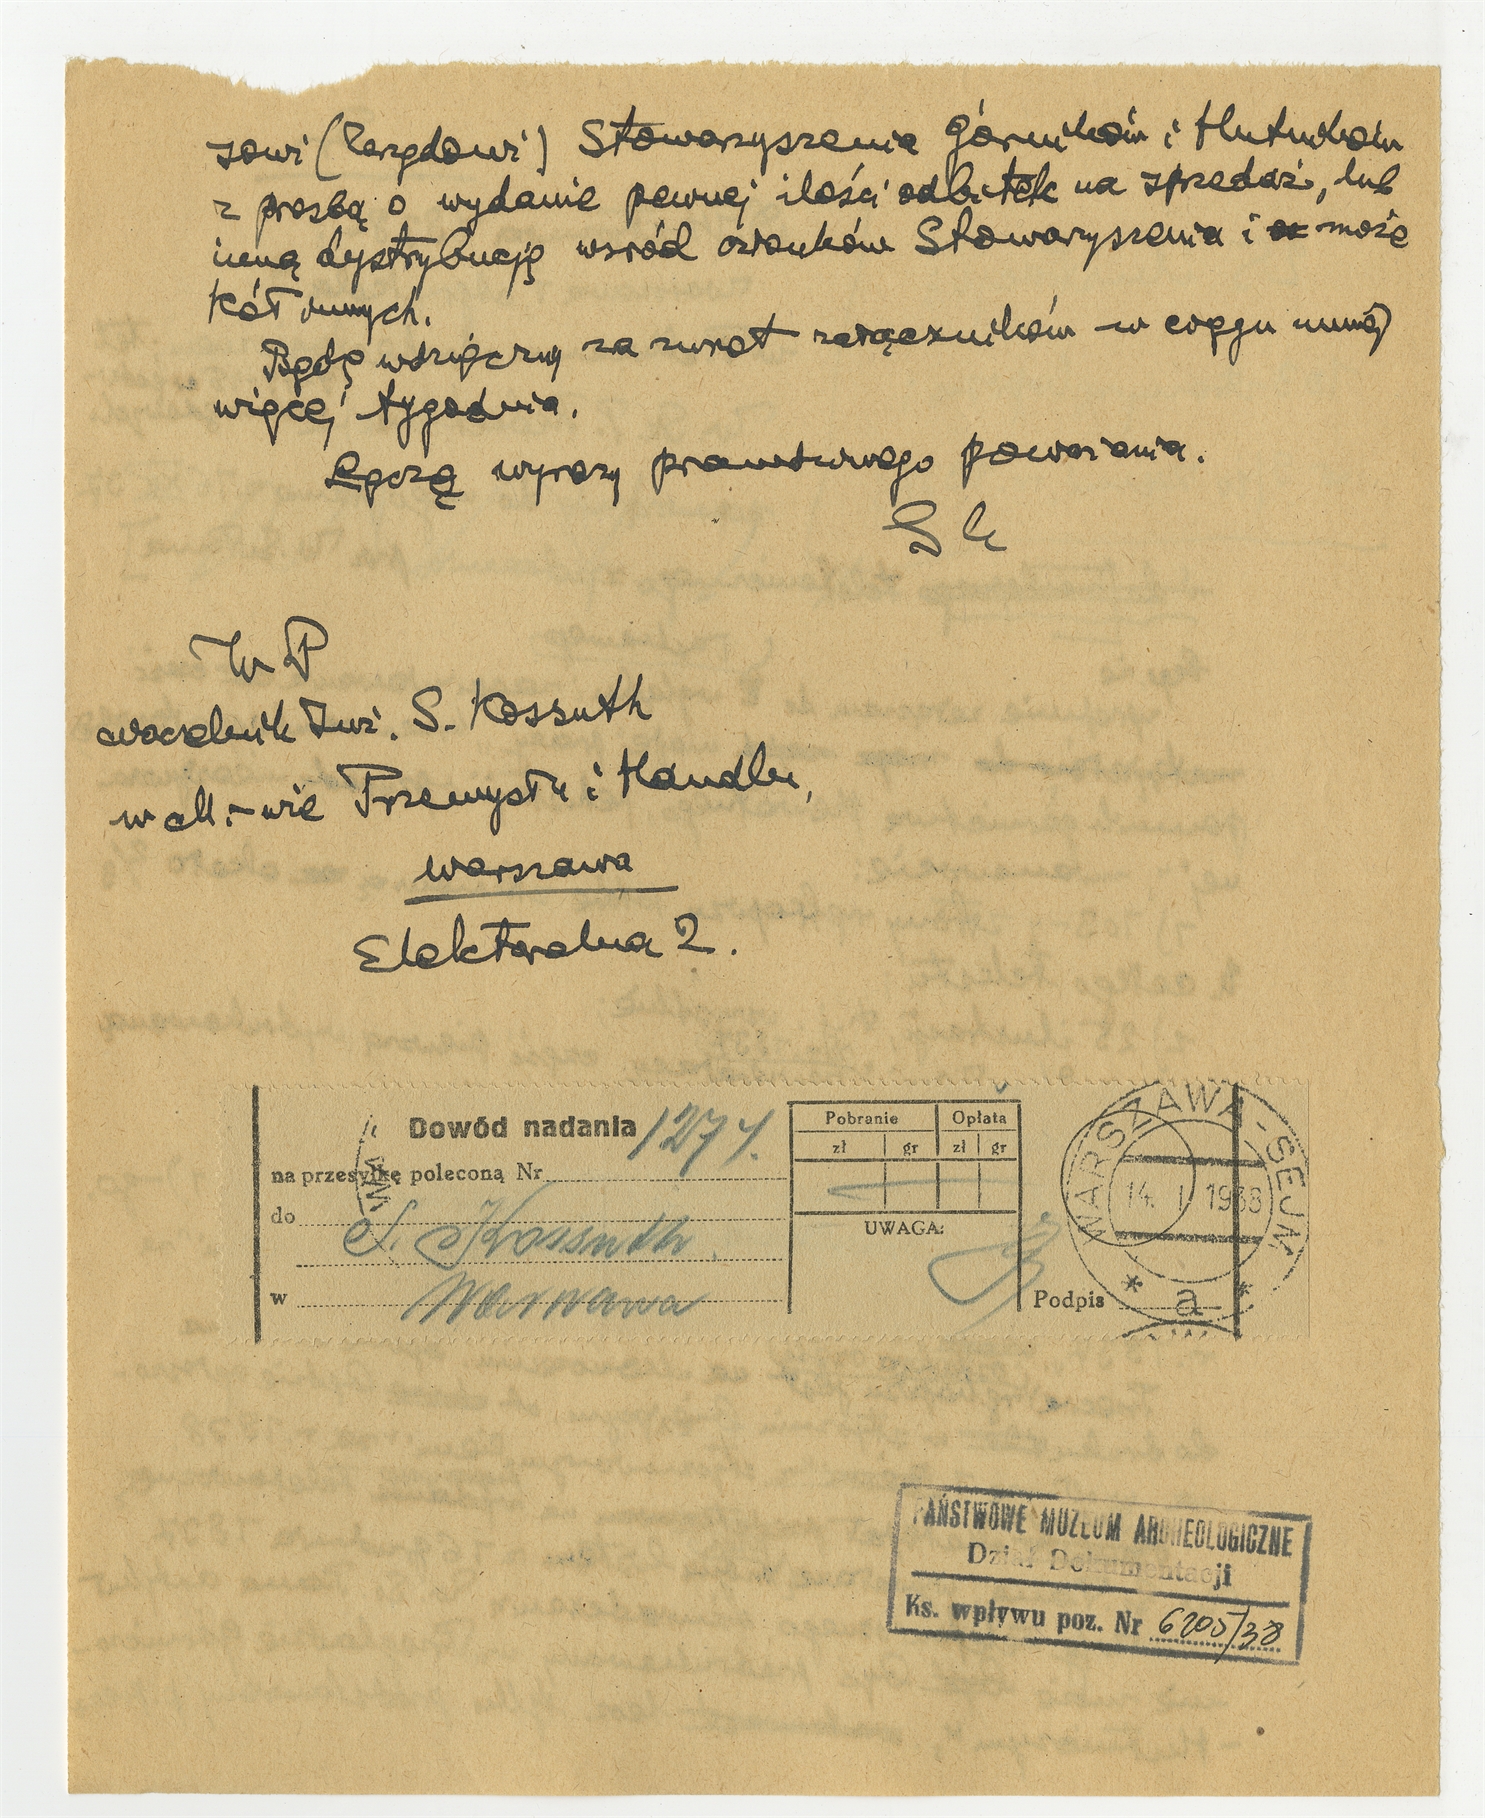 zowi (Zarządowi) Stowarzyszenia Górników i Hutników
z prosbą o wydanie pewnej ilości odbitek na sprzedaż, lub
inną dystrybucję wsród członków Stowarzyszenia i może
kół innych.
Będę wdzięczny za zwrot załączników w ciągu mniej
więcej tygodnia.
Łączę wyrazy prawdziwego poważania.
W P
Naczelnik Inż. S. Kossuth
w M.-wie Przemysłu i Handlu,
Warszawa
Elektoralna 2.
Dowód nadania 1274.
na przesyłkę poleconą Nr
do S. Kossuth.
w Warszawa
Pobranie Opłata
zł gr zł gr
UWAGA:
Podpis
WARSZAWA-SEJM
14. I 1938
* a *
PAŃSTWOWE MUZEUM ARCHEOLOGICZNE
Dział Dokumentacji
Ks. wpływu poz. Nr 6205/38